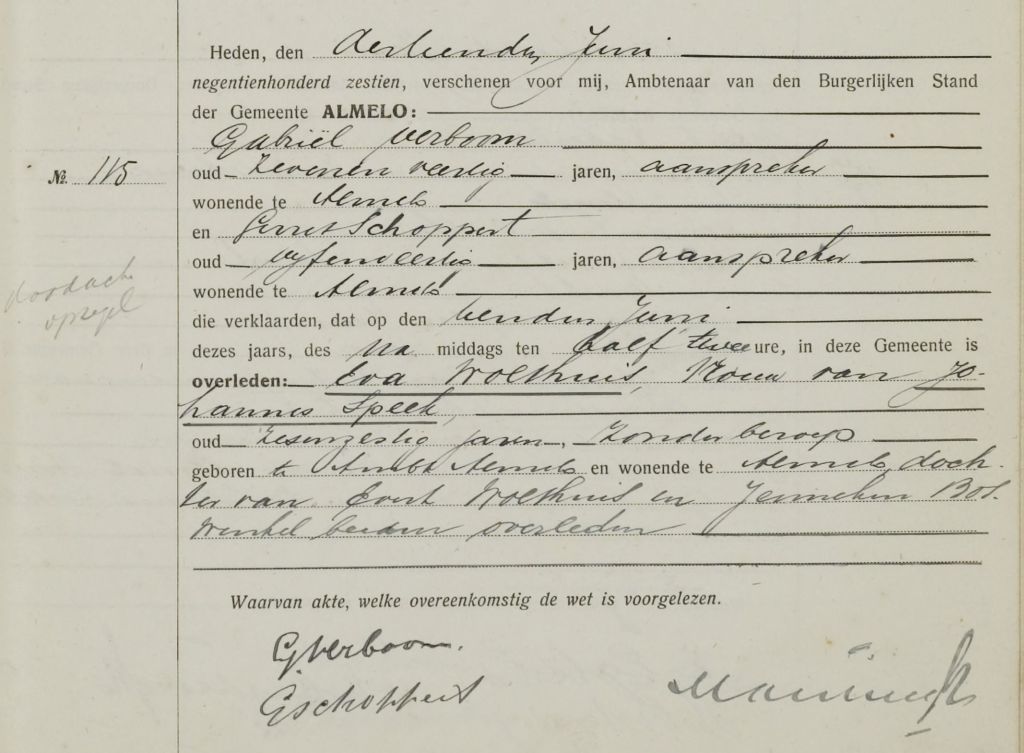 Heden, den dertienden Juni
negentienhonderd zestien, verschenen voor mij, Ambtenaar van den Burgerlijken Stand
der Gemeente ALMELO:
Gabriël Verboom
№. 115
oud zevenen veertig jaren, aanspreker
wonende te Almelo
en Gerrit Schoppert
oud vyfenveertig jaren, aanspreker
wonende te Almelo
die verklaarden, dat op den tienden Juni
dezes jaars, des na middags ten half twee ure, in deze Gemeente is
overleden: Eva Wolthuis, Vrouw van Jo-
hannes Speek,
oud zesenzestig jaren, zonder beroep
geboren te Ambt Almelo en wonende te Almelo, doch-
ter van Evert Wolthuis en Jenneken Bos-
winkel beiden overleden
Waarvan akte, welke overeenkomstig de wet is voorgelezen.
G Verboom.
G Schoppert